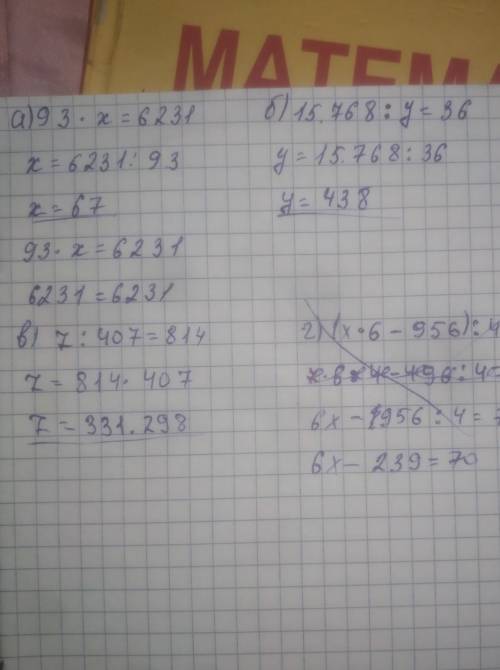 МАТЕМА
а) 93 · x = 6231
x = 6231 : 93
x = 67
93 · x = 6231
6231 = 6231
б) 15.768 : y = 36
y = 15.768 : 36
y = 438
в) z : 407 = 814
z = 814 · 407
z = 331.298
г) (x · 6 - 956) : 4
6x - 956 : 4 =
6x - 239 = 70